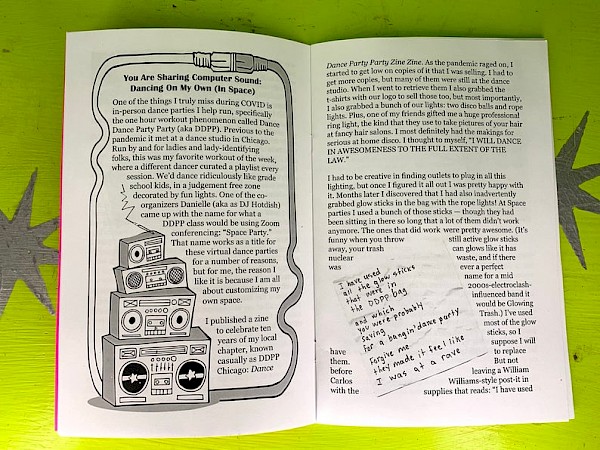 You Are Sharing Computer Sound:
Dancing On My Own (In Space)
One of the things I truly miss during COVID is
in-person dance parties I help run, specifically
the one hour workout phenomenon called Dance
Dance Party Party (aka DDPP). Previous to the
pandemic it met at a dance studio in Chicago.
Run by and for ladies and lady-identifying
folks, this was my favorite workout of the week,
where a different dancer curated a playlist every
session. We'd dance ridiculously like grade
school kids, in a judgement free zone
decorated by fun lights. One of the co-
organizers Danielle (aka as DJ Hotdish)
came up with the name for what a
DDPP class would be using Zoom
conferencing: "Space Party."
That name works as a title for
these virtual dance parties
for a number of reasons,
but for me, the reason I
like it is because I am all
about customizing my
own space.
I published a zine
to celebrate ten
years of my local
chapter, known
casually as DDPP
Chicago: Dance
Dance Party Party Zine Zine. As the pandemic raged on, I
started to get low on copies of it that I was selling. I had to
get more copies, but many of them were still at the dance
studio. When I went to retrieve them I also grabbed the
t-shirts with our logo to sell those too, but most importantly,
I also grabbed a bunch of our lights: two disco balls and rope
lights. Plus, one of my friends gifted me a huge professional
ring light, the kind that they use to take pictures of your hair
at fancy hair salons. I most definitely had the makings for
serious at home disco. I thought to myself, "I WILL DANCE
IN AWESOMENESS TO THE FULL EXTENT OF THE
LAW."
I had to be creative in finding outlets to plug in all this
lighting, but once I figured it all out I was pretty happy with
it. Months later I discovered that I had also inadvertently
grabbed glow sticks in the bag with the rope lights! At Space
parties I used a bunch of those sticks — though they had
been sitting in there so long that a lot of them didn't work
anymore. The ones that did work were pretty awesome. (It's
funny when you throw still active glow sticks
away, your trash can glows like it has
nuclear waste, and if there
was ever a perfect
name for a mid
2000s-electroclash-
influenced band it
would be Glowing
Trash.) I've used
most of the glow
sticks, so I
suppose I will
have to replace
them. But not
before leaving a William
Carlos Williams-style post-it in
with the supplies that reads: "I have used
I have used
all the glow sticks
that were in
the DDPP bag
and which
you were probably
saving
for a bangin' dance party
Forgive me
they made it feel like
I was at a rave